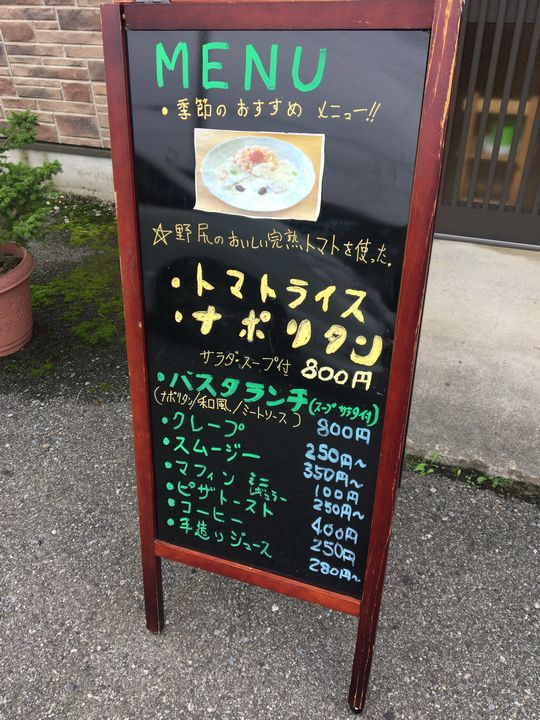 MENU
・季節のおすすめ メニュー!!
☆野尻のおいしい完熟トマトを使った。
・トマトライス
・ナポリタン
サラダ・スープ付 800円
・パスタランチ(スープ サラダ付)
(ナポリタン/和風/ミートソース) 800円
・クレープ 250円〜
・スムージー 350円〜
・マフィン ミニ 100円
レギュラー 250円〜
・ピザトースト 400円
・コーヒー 250円
・手造りジュース 280円〜